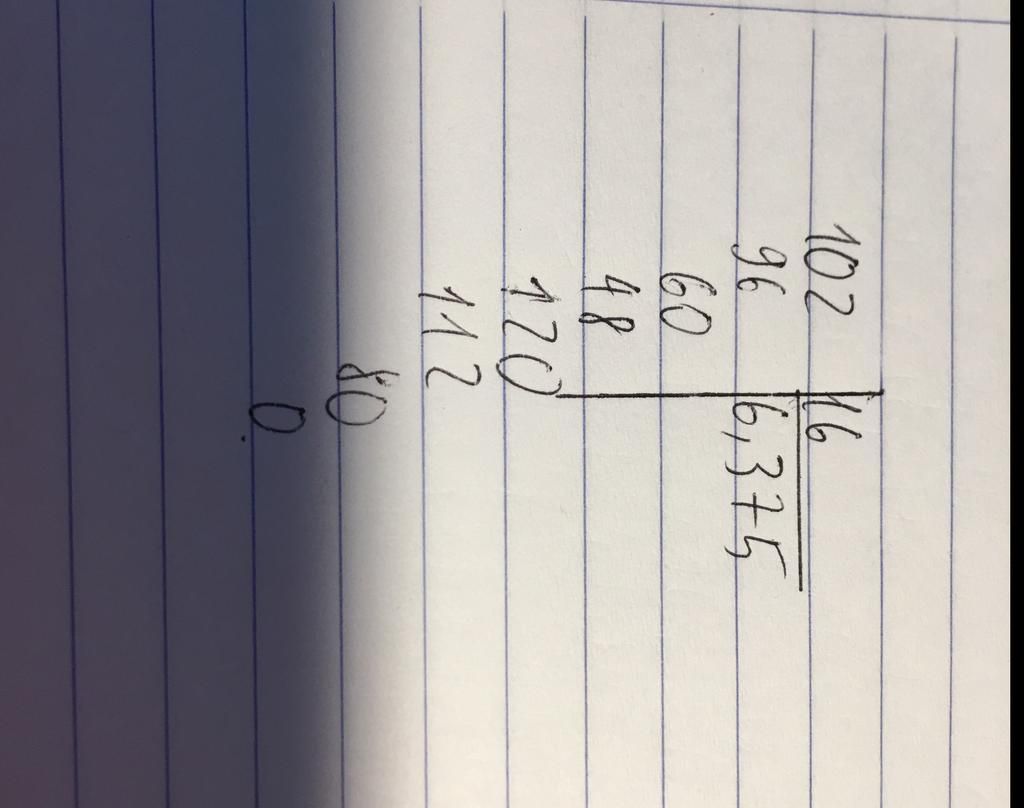 102 16
96 6,375
60
48
120
112
80
0